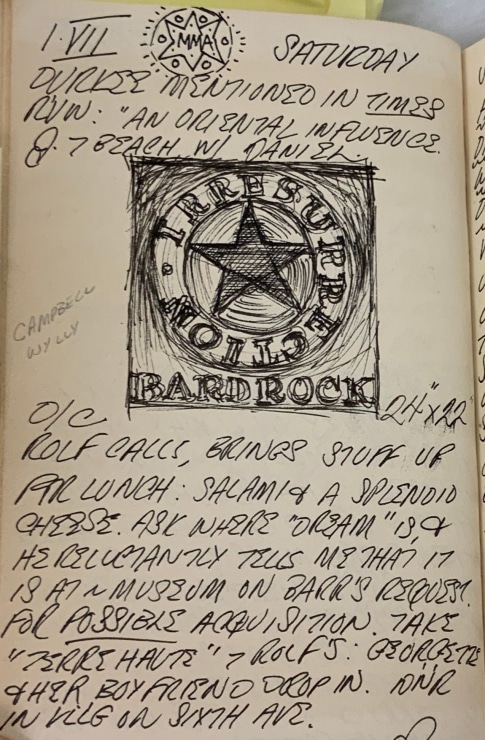 1·VII
MMA
SATURDAY
DURKEE MENTIONED IN TIMES
RVW: "AN ORIENTAL INFLUENCE.
7 BEACH W/ DANIEL.
· IRRESURRECTION
BARDROCK
24" x 22"
CAMPBELL
WYLLY
O/C
ROLF CALLS, BRINGS STUFF UP
FOR LUNCH: SALAMI & A SPLENDID
CHEESE. ASK WHERE "DREAM" IS, &
HE RELUCTANTLY TELLS ME THAT IT
IS AT ~ MUSEUM ON BARR'S REQUEST.
FOR POSSIBLE ACQUISITION. TAKE
"TERRE HAUTE" 7 ROLF'S: GEORGETTE
& HER BOYFRIEND DROP IN. DNR
IN VLLG ON SIXTH AVE.